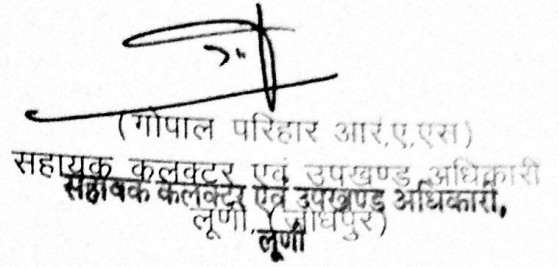 (गोपाल परिहार आर.ए.एस)
सहायक कलक्टर एवं उपखण्ड अधिकारी
सहायक कलक्टर एवं उपखण्ड अधिकारी,
लूणी, (जोधपुर)
लूणी